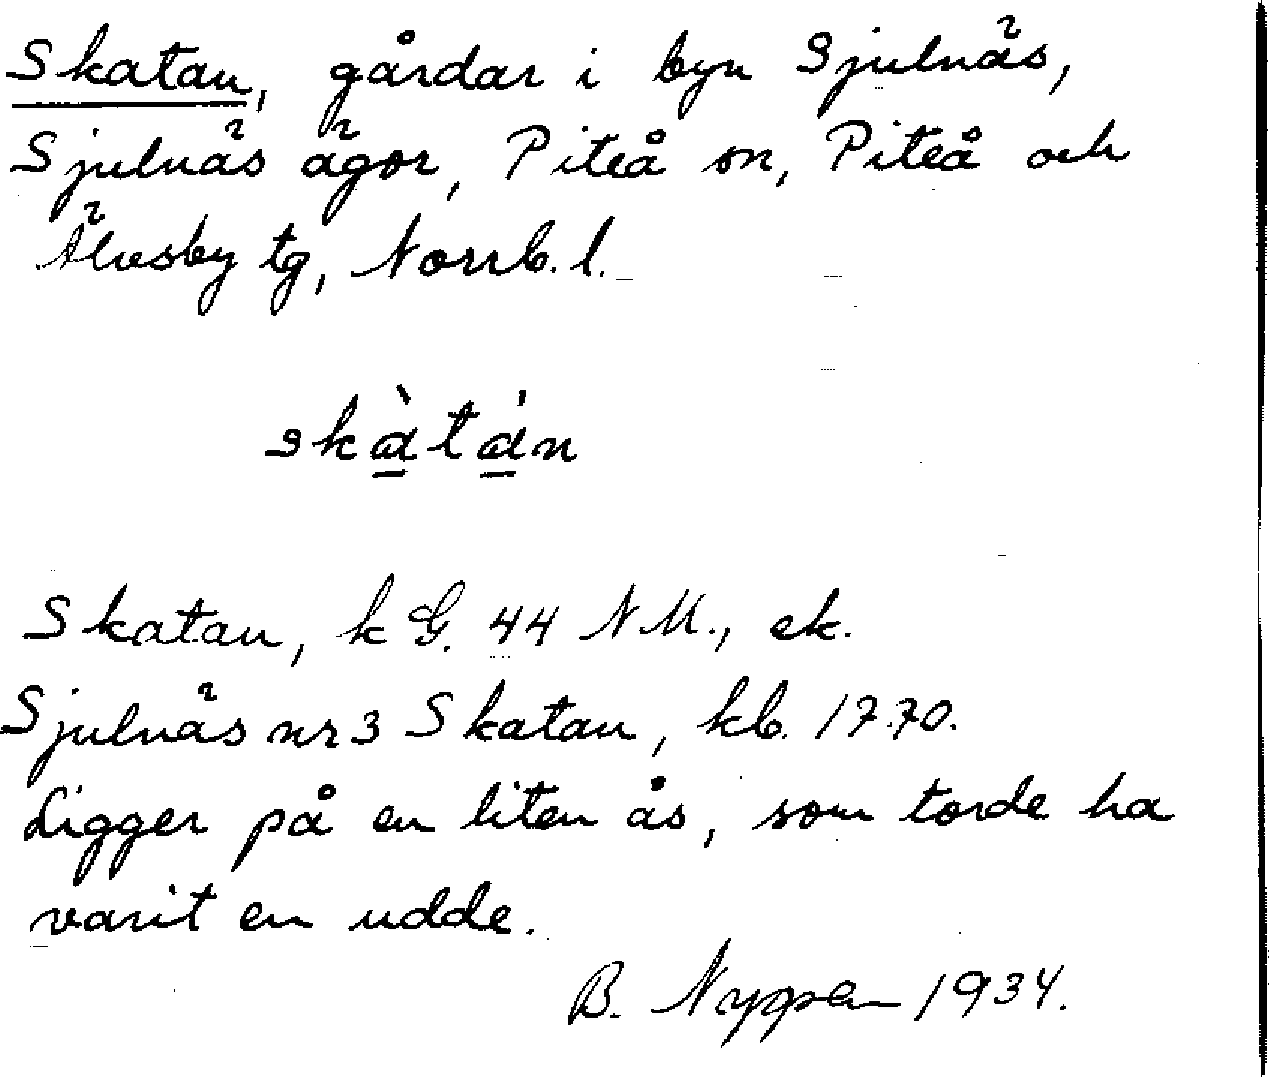 Skatan, gårdar i byn Sjulnäs,
Sjulnäs ägor, Piteå sn, Piteå och
Älvsby tg, Norrb. l.
skàtán
Skatan, k G. 44 NM., ek.
Sjulnäs nr 3 Skatan, kb. 1770.
Ligger på en liten ås, som torde ha
varit en udde.
B. 1934.